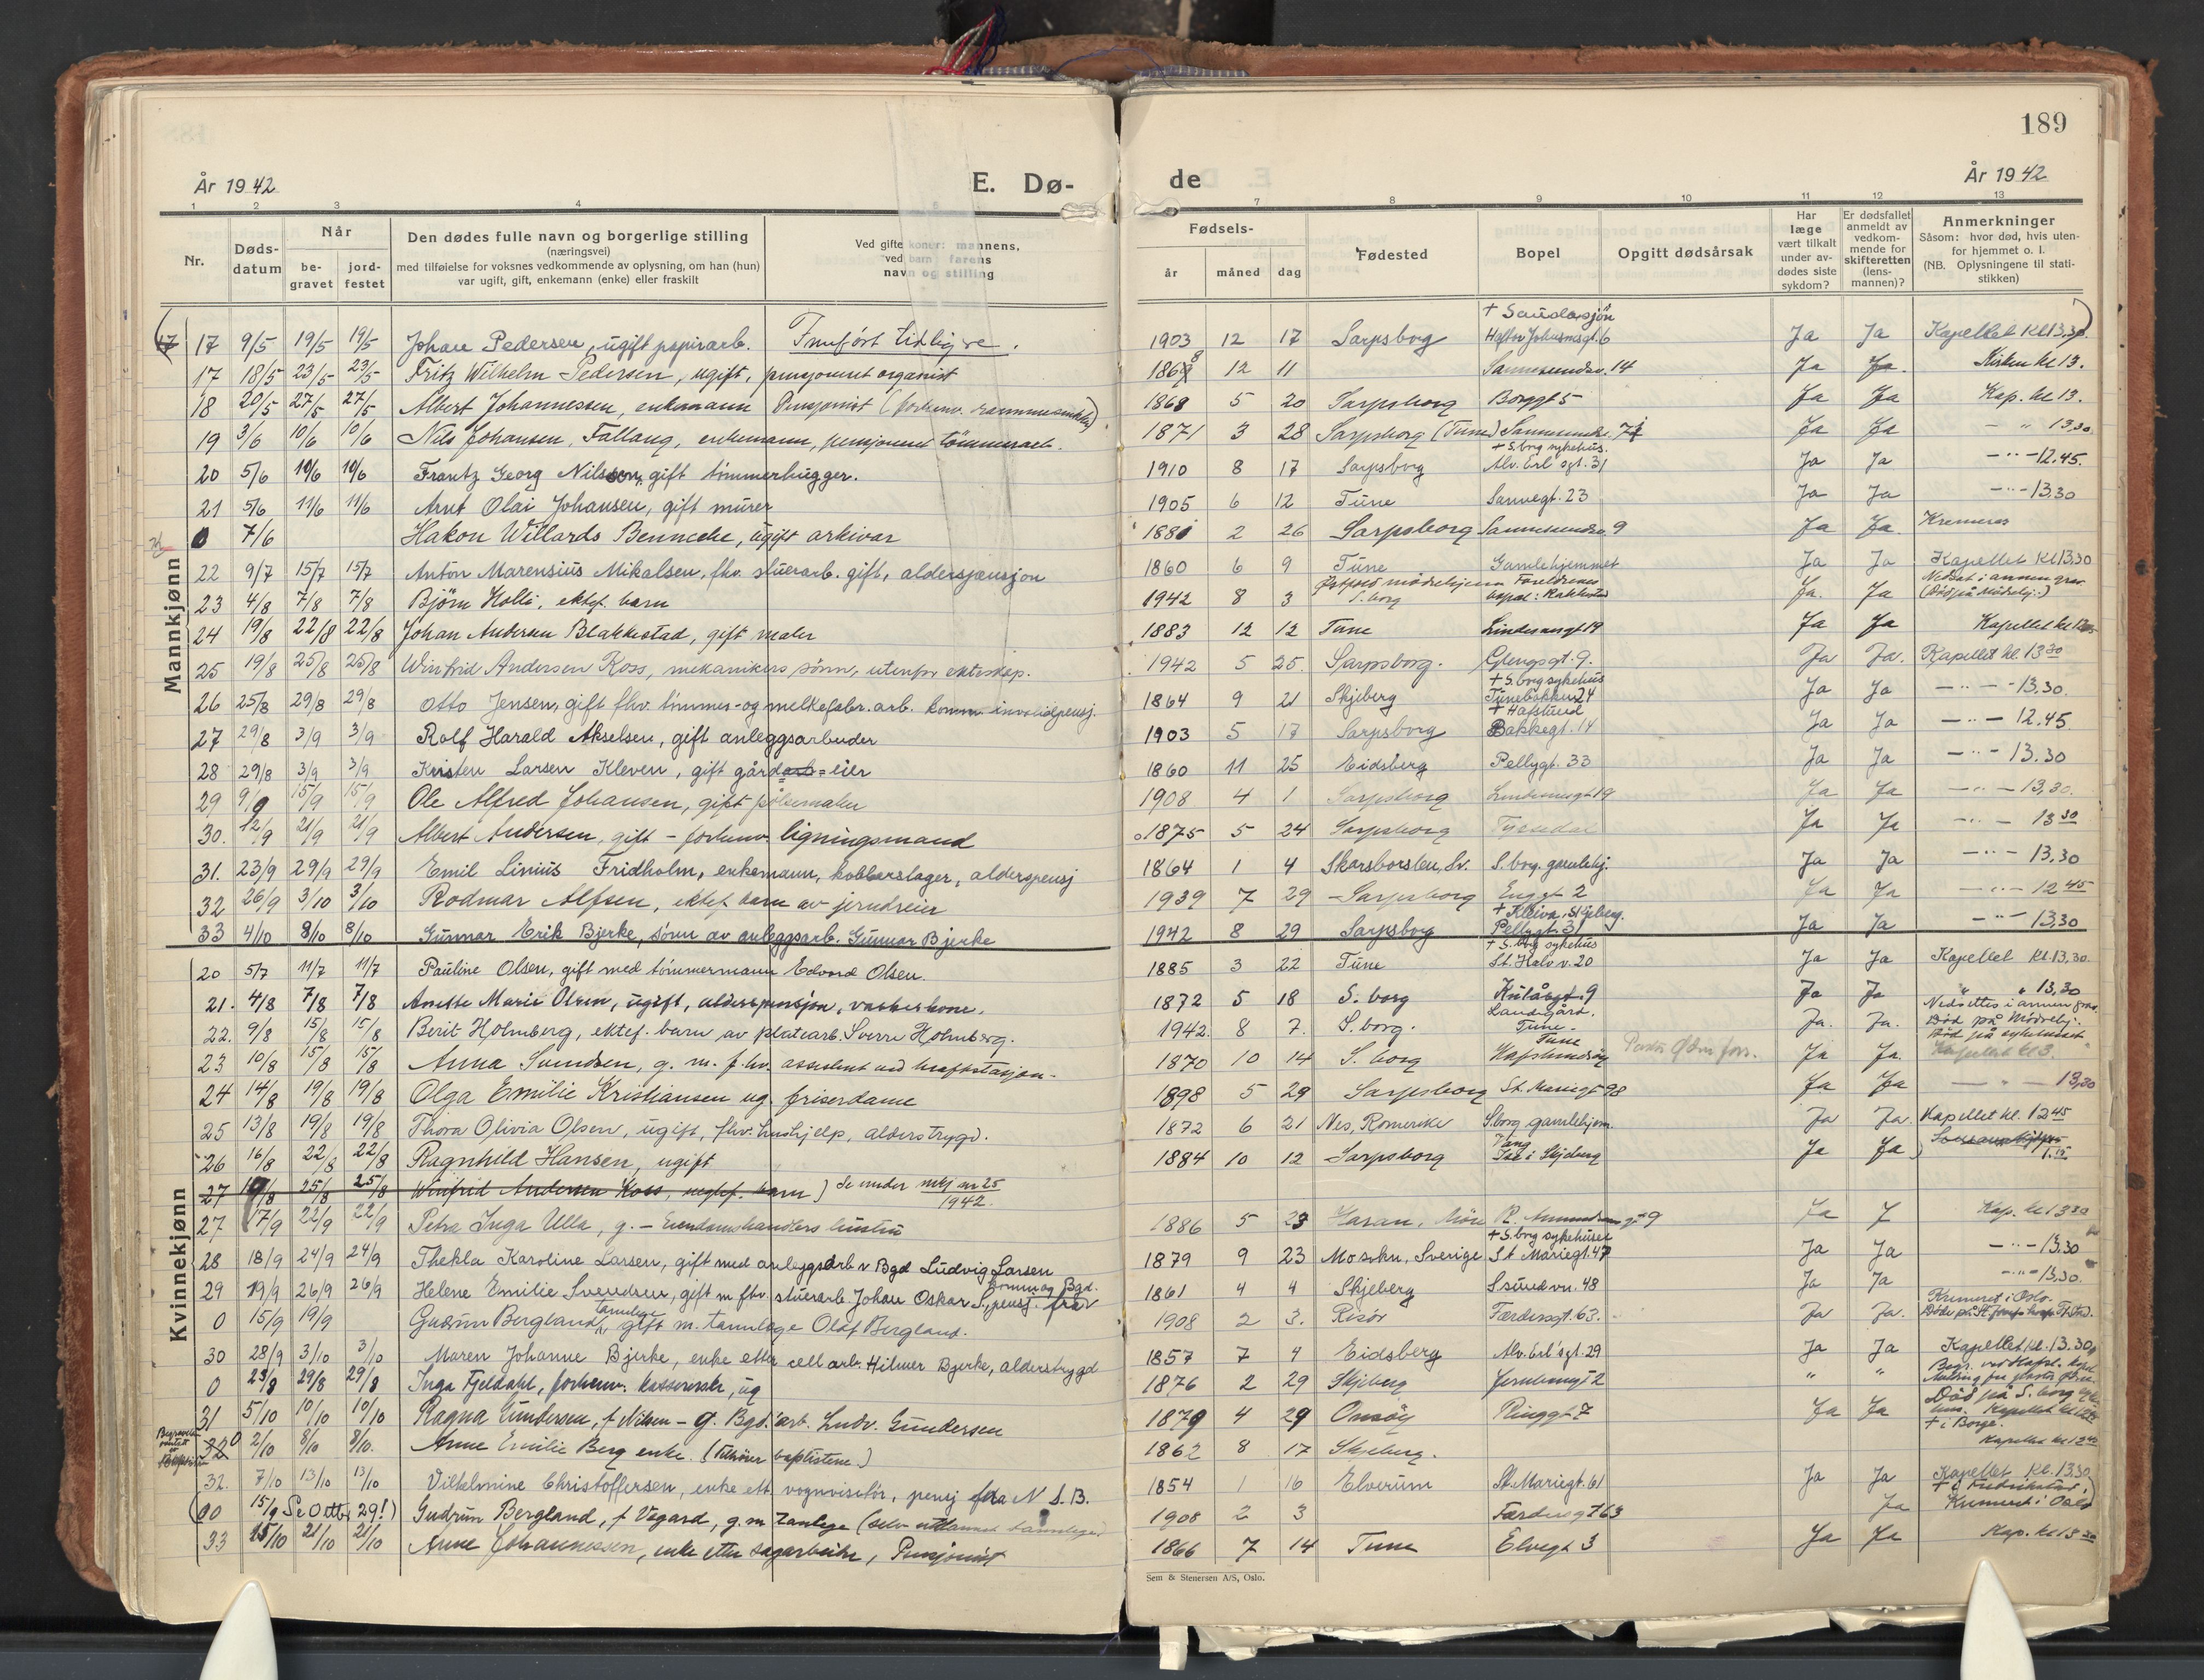 189
År 1942
E. Dø-
de
År 1942
1 2 3 4 7 8 9 10 11 12 13
Nr.
Døds-
datum
Når
be-
gravet
jord-
festet
Den dødes fulle navn og borgerlige stilling
(næringsvei)
med tilføielse for voksnes vedkommende av oplysning, om han (hun)
var ugift, gift, enkemann (enke) eller fraskilt
Ved gifte koner: mannens,
ved barn: farens
navn og stilling
Fødsels-
år måned dag
Fødested
Bopel
Opgitt dødsårsak
Har
læge
vært tilkalt
under av-
dødes siste
sykdom?
Er dødsfallet
anmeldt av
vedkom-
mende for
skifteretten
(lens-
mannen)?
Anmerkninger
Såsom: hvor død, hvis uten-
for hjemmet o. l.
(NB. Oplysningene til stati-
stikken)
Mannkjønn
17 17 9/5 19/5 19/5 Johan Pedersen, ugift papirarb. Innført tidligere. 1903 12 17 Sarpsborg Ja Ja Kapellet kl 13.30
17 18/5 23/5 23/5 Fritz Wilhelm Pedersen, ugift, pensjonert organist 1868 12 11 Sannesundsv. 14 Ja Ja. Kirken kl 13.
18 20/5 27/5 27/5 Albert Johannessen, enkemann Pensjonist 1868 5 20 Sarpsborg Borggt 5 Ja Ja Kap. kl 13.
19 3/6 10/6 10/6 Nils Johansen, Fallang, enkemann, pensjonert tömmerarb. 1871 3 28 Sarpsborg (Tune) Ja Ja - " 13,30.
+ S.borg sykehus.
20 5/6 10/6 10/6 Frantz Georg Nilsson, gift tömmerhugger. 1910 8 17 Sarpsborg Alv. Erl sgt. 31 Ja Ja -"-12.45.
21 5/6 11/6 11/6 Arnt Olai Johansen, gift murer 1905 6 12 Tune Sannegt. 23 Ja Ja -"-13.30
0 7/6 Hakon Willards Bennecke, ugift arkivar 1880 2 26 Sarpsborg Sannesundsv. 9 Ja Ja. Kremeres
22 9/7 15/7 15/7 Anton Marensius Mikalsen, fhv. stuerarb. gift, alderspensjon 1860 6 9 Tune Gamlehjemmet Ja Ja Kapellet kl 13.30
23 4/8 7/8 7/8 Björn Holli, ektef. barn 1942 8 3 S. borg Ja. Ja Nedsat i annen grav
24 19/8 22/8 22/8 Johan Andersen Blakkestad, gift maler 1883 12 12 Tune Lindemangt 19 Ja Ja
25 19/8 25/8 25/8 Winfrid Andersen Koss, mekanikers sönn, utenfor ekteskap. 1942 5 25. Sarpsborg. Glengsgt. 9. Ja Ja. Kapellet kl. 13 30
+ S. borg sykehus
26 25/8 29/8 29/8 Otto Jensen, gift fhv. tömmer- og melkefabr. arb. komm. invalidpensj. 1864 9 21 Skjeberg Tunebakken 24 Ja Ja -"-13.30.
+ Hafslund
27 29/8 3/9 3/9 Rolf Harald Akselsen, gift anleggsarbeider 1903 5 17 Sarpsborg Bakkegt. 14 Ja Ja -"- 12.45
28 29/8 3/9 3/9 Kristen Larsen Kleven, gift gårdarb=eier 1860 11 25 Eidsberg Pellygt. 33 Ja Ja -"- 13.30
29 9/9 15/9 15/9 Ole Alfred Johansen, gift pölsemaker 1908 4 1 Sarpsborg Lindemangt 19 Ja Ja -"- 13,30.
30. 12/9 21/9 21/9 Albert Andersen, gift - forhenv. ligningsmand 1875 5 24 Sarpsborg Ja Ja -"- 13 30
31. 23/9 29/9 29/9 Emil Linius Fridholm, enkemann, kobberslager, alderspensj 1864 1 4 S. borg. gamlehj. Ja Ja -"- 13,30
32 26/9 3/10 3/10 Rodmar Alfsen, ektef. barn av jerndreier 1939 7 29 Sarpsborg Enggt 2 Ja Ja -"- 12 45
+ Kleiva, Skjeberg.
33 4/10 8/10 8/10 Gunnar Erik Bjerke, sönn av anleggsarb. Gunnar Bjerke 1942 8 29 Sarpsborg Pellygt 31 Ja Ja -"- 13,30
Kvinnekjønn
+ S. borg sykehus
20 5/7 11/7 11/7 Pauline Olsen, gift med tömmermann Edvard Olsen. 1885 3 22 Tune St. Halv v. 20 Ja Ja Kapellet kl. 13,30.
21. 4/8 7/8 7/8 Anette Marie Olsen, ugift, alderspensjon, vaskerkone. 1872 5 18 S. borg Kulåsgt. 9 Ja Ja " " 13,30
22. 9/8 15/8 15/8 Berit Holmberg, ektef. barn av platearb. Sverre Holmberg. 1942. 8 7. S. borg. Tune. Ja. Ja. Død på Mødrehj.
23 10/8 15/8 15/8 Anna Svendsen, g. m. f. hv. assistent ved kraftstasjon 1870 10 14 S. borg Ja Ja Død på sykehuset
24 14/8 19/8 19/8 Olga Emilie Kristiansen ug. friserdame 1898 5 29 Sarpsborg St. Mariegt 98 Ja Ja - " - 13,30
25 13/8 19/8 19/8 Thora Olivia Olsen, ugift, fhv. hushjelp, alderstrygd. 1872 6 21 Nes, Romerike S.borg gamlehjem Ja Ja. Kapellet kl. 12 45
26 16/8 22/8 22/8 Ragnhild Hansen, ugift 1884 10 12 Sarpsborg Ise i Skjeberg Ja Ja
27 19/8 25/8 25/8 Winfrid Andersen Koss, uegtef. barn) Se under mkj nr 25
1942.
27 17/9 22/9 22/9 Petra Inga Ulla, g. - Eiendomshandlers hustru 1886 5 23 Ja J Kap. kl 13 30
+ S. borg sykehuset
28 18/9 24/9 24/9 Thekla Karoline Larsen, gift med anleggsarb v Bgd Ludvig Larsen 1879 9 23 St Mariegt. 47 Ja Ja -"-13.30
29 19/9 26/9 26/9 Helene Emilie Svendsen, gift m fhv. stuerarb. Johan Oskar S., pensj. fra Borg. 1861 4 4 Skjeberg S.sund vn. 48 Ja Ja -"-13.30.
0 15/9 19/9 Gudrun Bergland, tannlege gift m. tannlæge Olaf Bergland. 1908 2 3. Risör Færdersgt. 63. Ja Ja. Kremert i Oslo.
30 28/9 3/10 3/10 Maren Johanne Bjerke, enke etter cell arb. Hilmer Bjerke, alderstrygd 1857 7 4 Eidsberg Alv. Erl'sgt. 29 Ja Ja Kapellet kl. 13.30
0 23/8 29/8 29/8 Inga Fjeldahl, forhenv. kassererske, ug 1876 2 29 Skjeberg Jernbanegt 2 " "
31 5/10 10/10 10/10 Ragna Gundersen, f Nilsen - g. Bgd. arb. Ludv. Gundersen 1879 4 29 Onsöy Ringgt 7 Ja Ja Död på S. borg
32 0 2/10 8/10 8/10. Anne Emilie Berg enke. (Tilhörer baptistene.) 1862 8 17 Skjeberg. + i Borge.
32. 7/10 13/10 13/10 Vilhelmine Christoffersen, enke ett. vognvisitör, pensj fra N. S. B. 1854 1 16 Elverum St. Mariegt. 61 Ja Ja Kapellet kl. 13.30
(00 15/9 Se Otte 29!) Gudrun Bergland, f Vagard, g. m tanlege (selv utdannet tannlege) 1908 2 3 Færdersgt 63 Ja Kremert i Oslo
33 15/10 21/10 21/10 Anne Johannessen, enke etter sagarbeider, Pensjonist 1866 7 14 Tune Elvegt 3 Ja Ja Kap. kl 13 30
Sem & Stenersen A/S, Oslo.